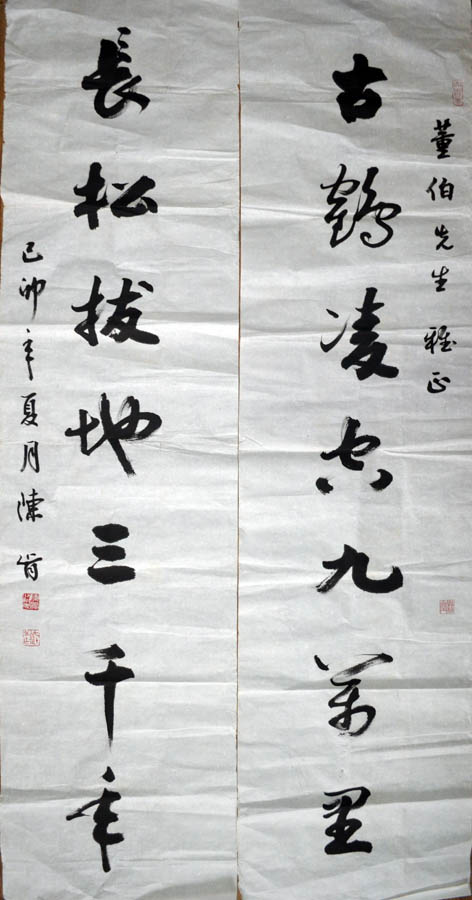 董伯先生 雅正
古鶴凌空九萬里
長松拔地三千年
己卯年夏月陳肯